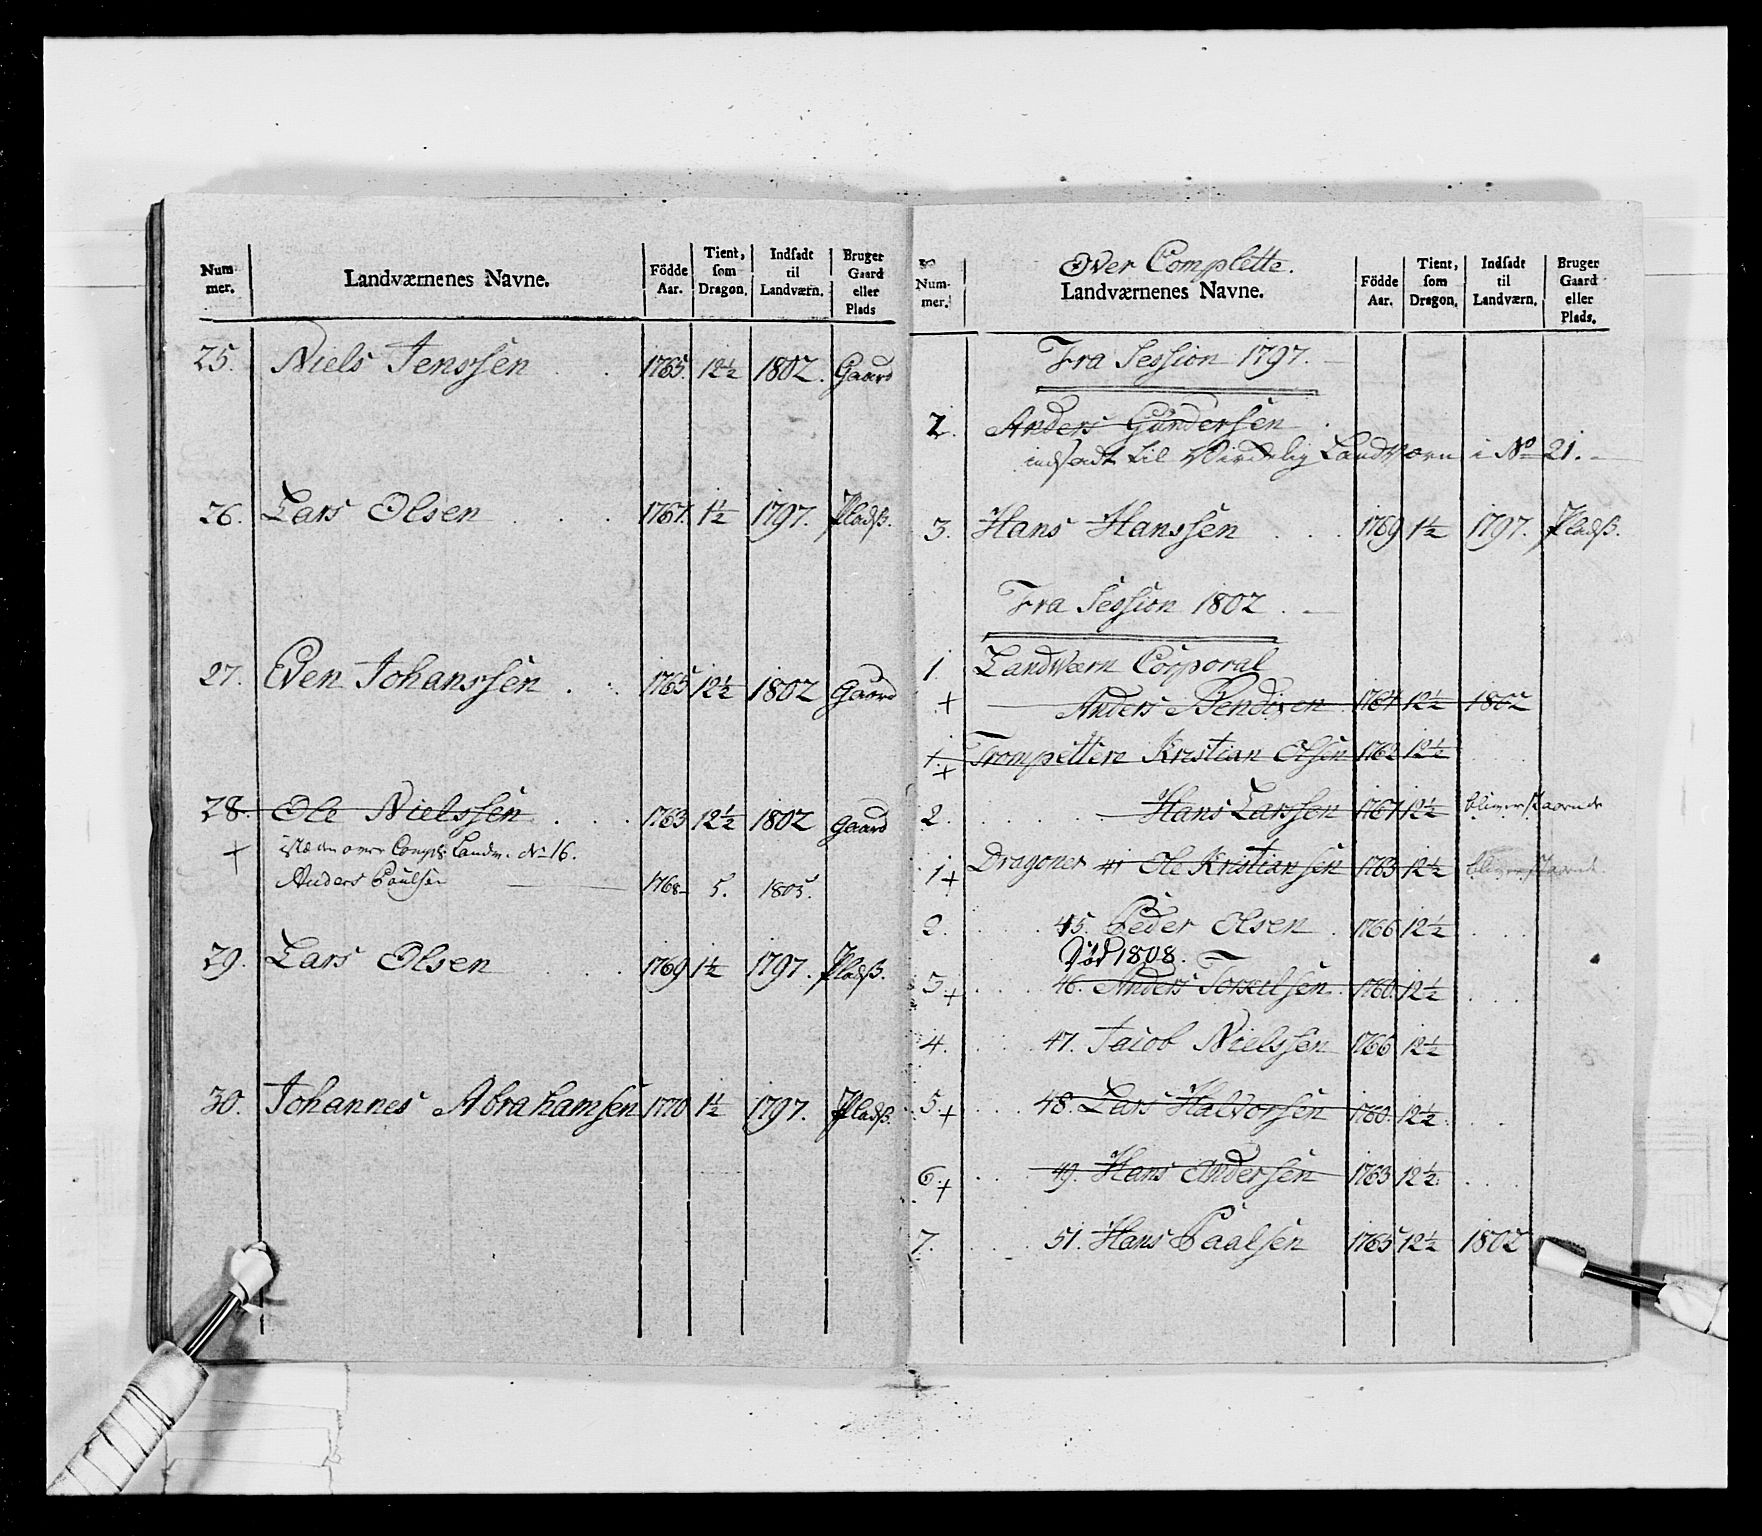 Num-
mer.
Landværnenes Navne.
Födde
Aar.
Tient,
som
Dragon.
Indsadt
til
Landværn.
Bruger
Gaard
eller
Plads
25. Niels Jenssen . . 1765. 12½ 1802. Gaard
26. Lars Olsen . . . 1767. 1½ 1797. Pladß.
27. Even Johanssen . . 1765 12½ 1802 Gaard
28. Ole Nielssen . . . 1763 12½ 1802 Gaard
+ over Compl: Landv. No 16.
Anders Poulsen 1768 5. 1805.
29. Lars Olsen . . 1769 1½ 1797. Pladß.
30. Johannes Abrahamsen 1770 1½ 1797. Pladß.
Num-
mer.
Over Complette.
Landværnenes Navne.
Födde
Aar.
Tient,
som
Dragon.
Indsadt
til
Landværn.
Bruger
Gaard
eller
Plads.
Fra Session 1797.
2. Anders Gundersen
indsadt til Landværn i No 21.
3. Hans Hanssen . . . 1769 1½ 1797. Pladß.
Fra Session 1802.
1 Landværn Corporal
+ Anders Bendixen 1764 12½ 1802
1. + Trompettere Kristian Olsen 1762 12½
2. Hans Larssen 1767 12½ bliver staaende
1+ Dragoner 41 Ole Kristiansen 1763 12½ bliver staaende
2. 45. Peder Olsen . 1766 12½
Død 1808.
3+ 46. Anders Torkelsen 1760. 12½
4. 47. Jacob Nielssen 1766 12½
5+ 48. Lars Halvorsen 1760. 12½
6+ 49. Hans Andersen 1763 12½
7. 51. Hans Paalsen 1765 12½ 1802